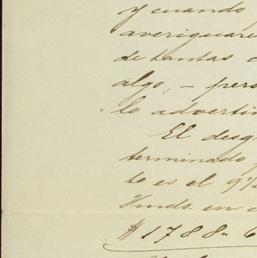 y cuando
averiguare
de tantas
algo, – pero
lo advertin
El desg
terminado
to es el 9%
Vnds. en
$1788-6